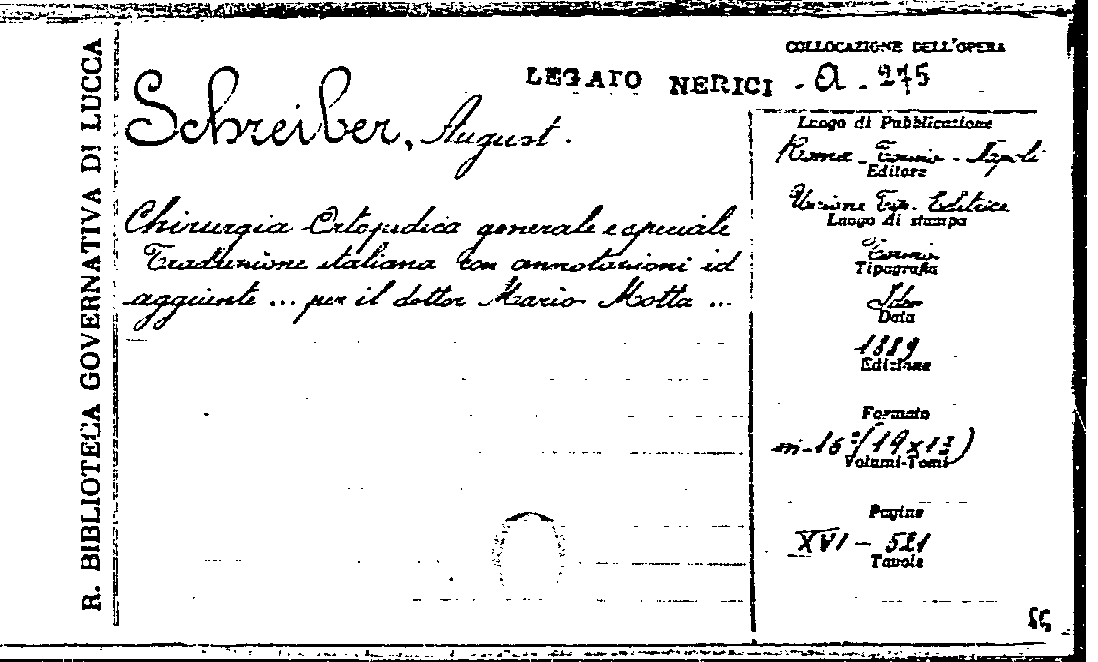 R. BIBLIOTECA GOVERNATIVA DI LUCCA
COLLOCAZIONE DELL'OPERA
LEGATO NERICI - a - 275
Schreiber, August.
Chirurgia Ortopedica generale e speciale
Traduzione italiana con annotazioni ed
aggiunte ... per il dottor Mario Motta ...
Luogo di Pubblicazione
Roma - Torino - Napoli
Editore
Unione Tip. Editrice
Luogo di stampa
Torino
Tipografia
Idem
Data
1889
Edizione
Formato
in-16º (19 x 13)
Volumi-Tomi
Pagine
XVI - 521
Tavole